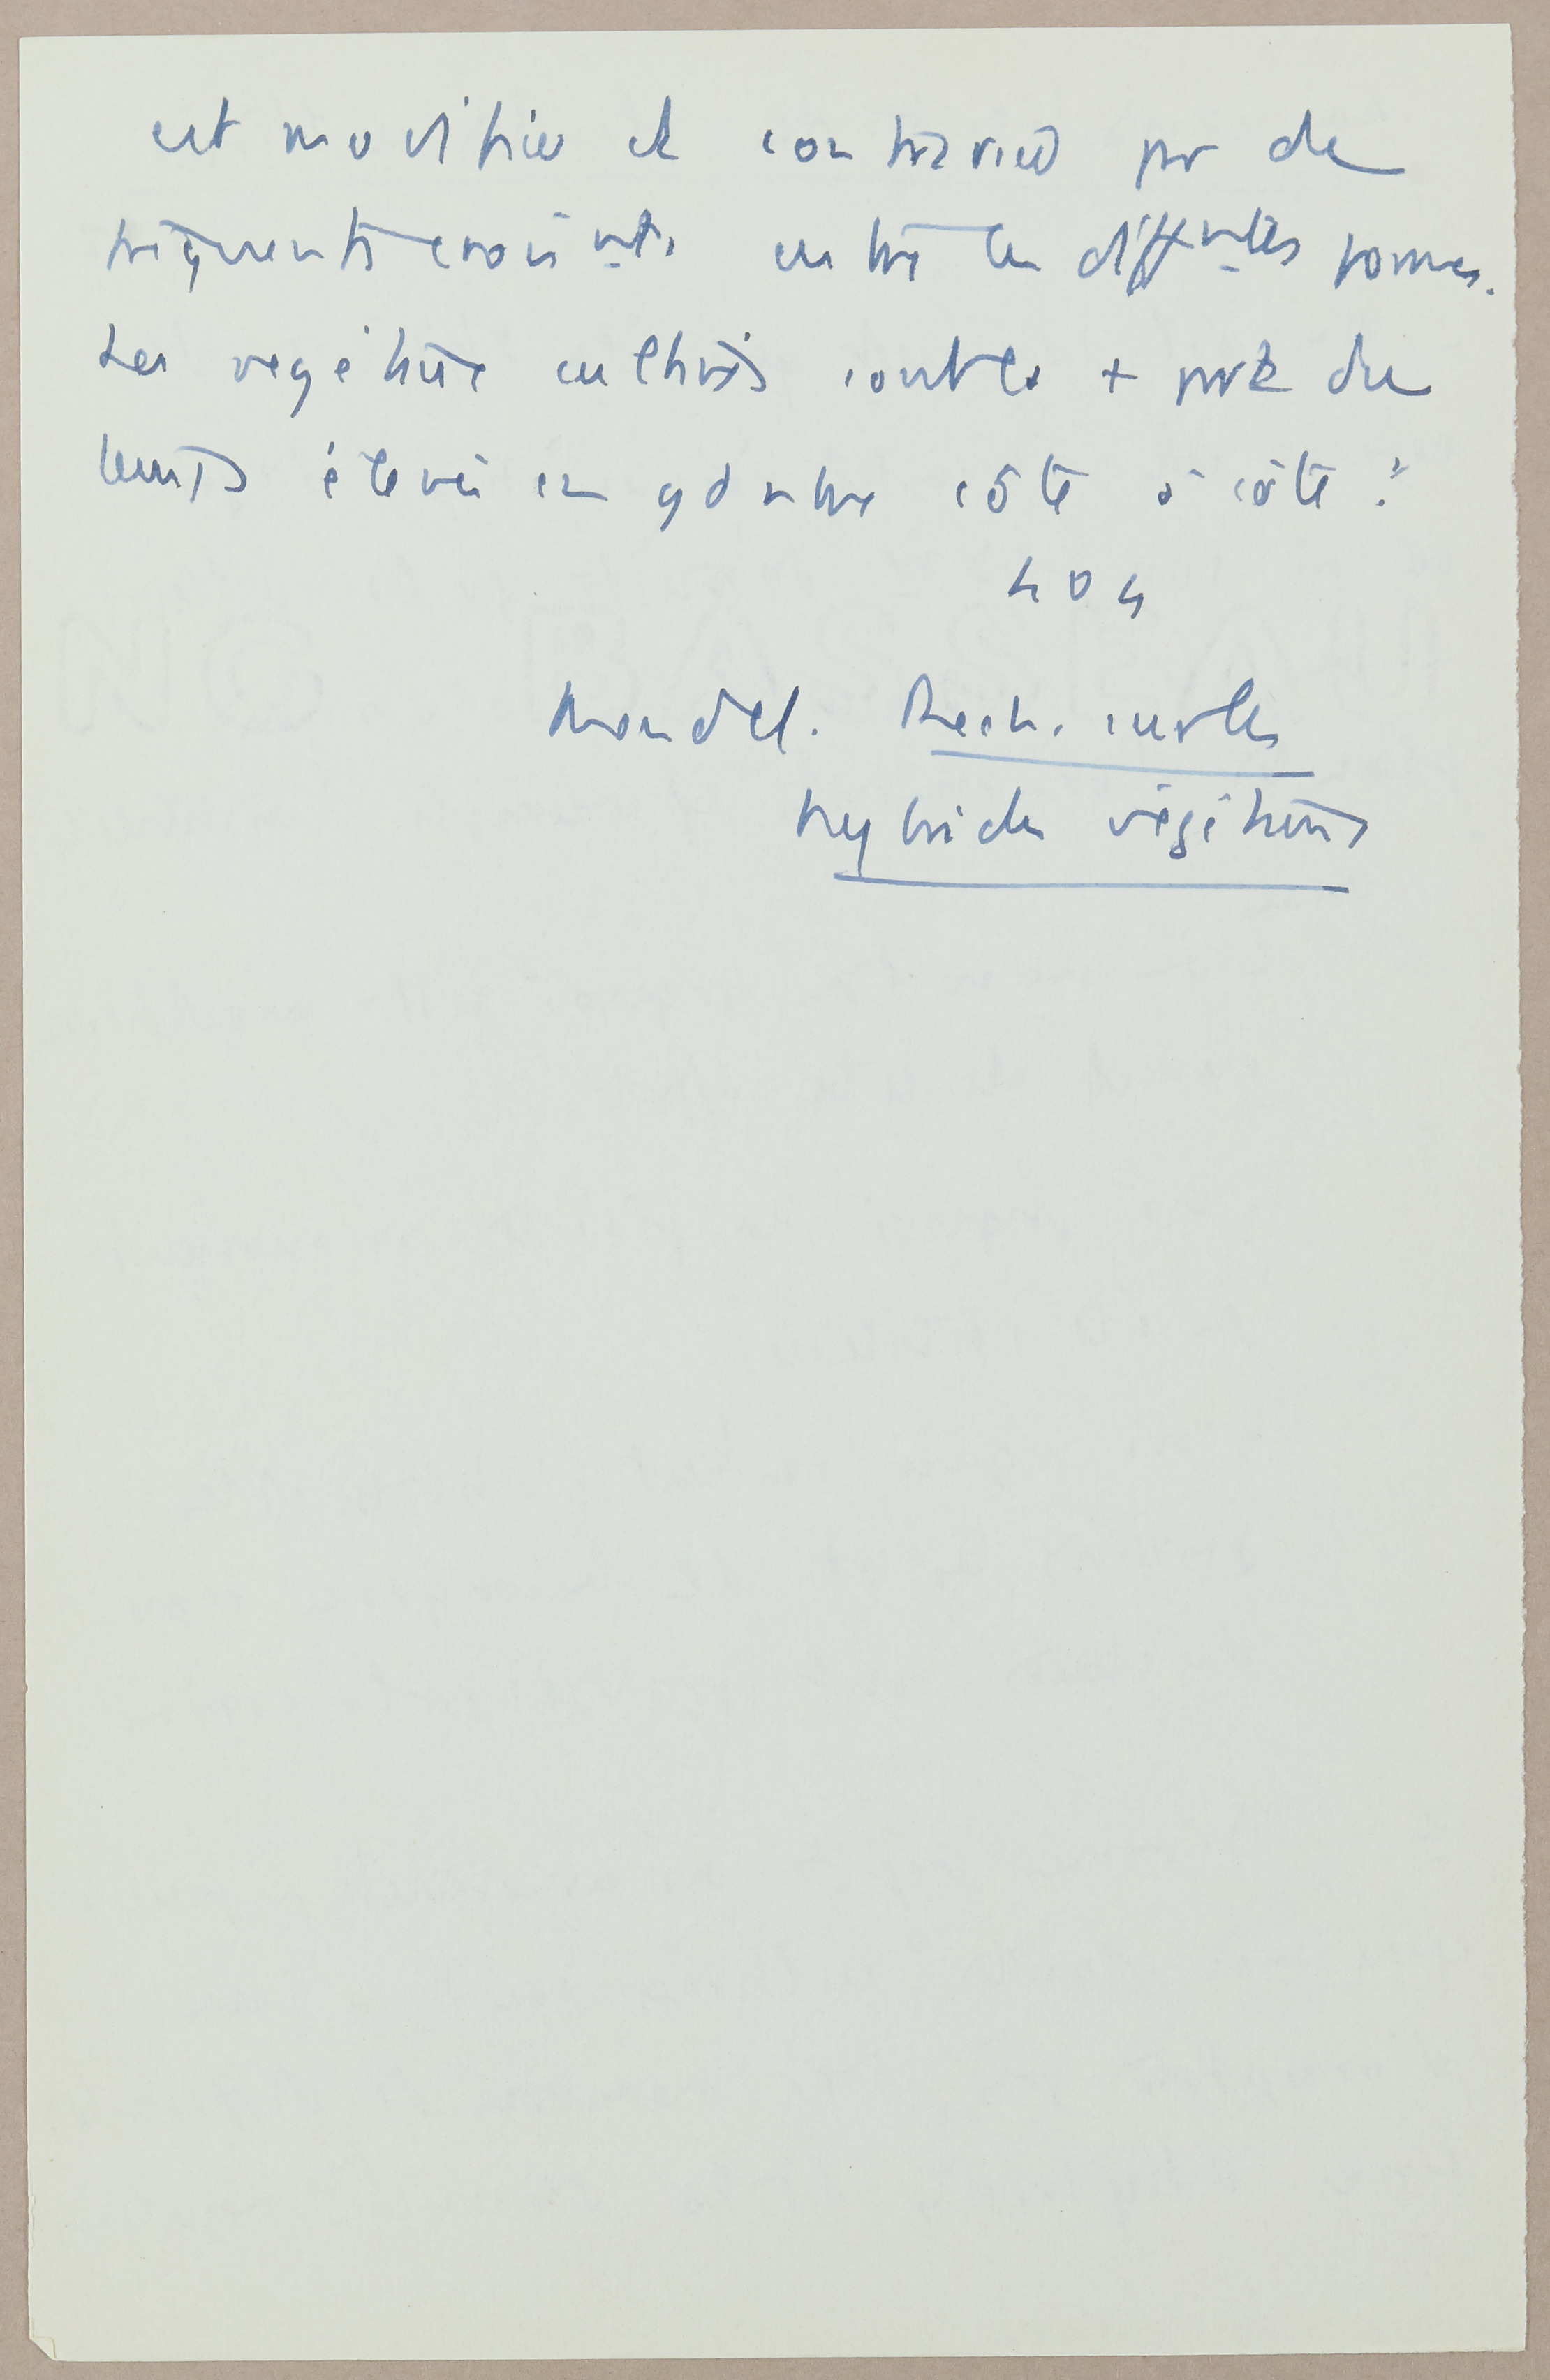 est modifiée et contrariée par de
fréquents croisnts entre les diffntes formes.
Les végétaux cultivés sont les + part du
temps élevés en gd nbre côté à côté."
404
Mendel. Rech. sur les
hybrides végétaux